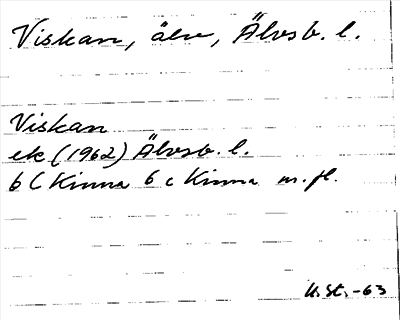 Viskan, älv, Älvsb. l.
Viskan
ek (1962) Älvsb. l.
6 C Kinna 6 c Kinna m. fl.
U. St. -63